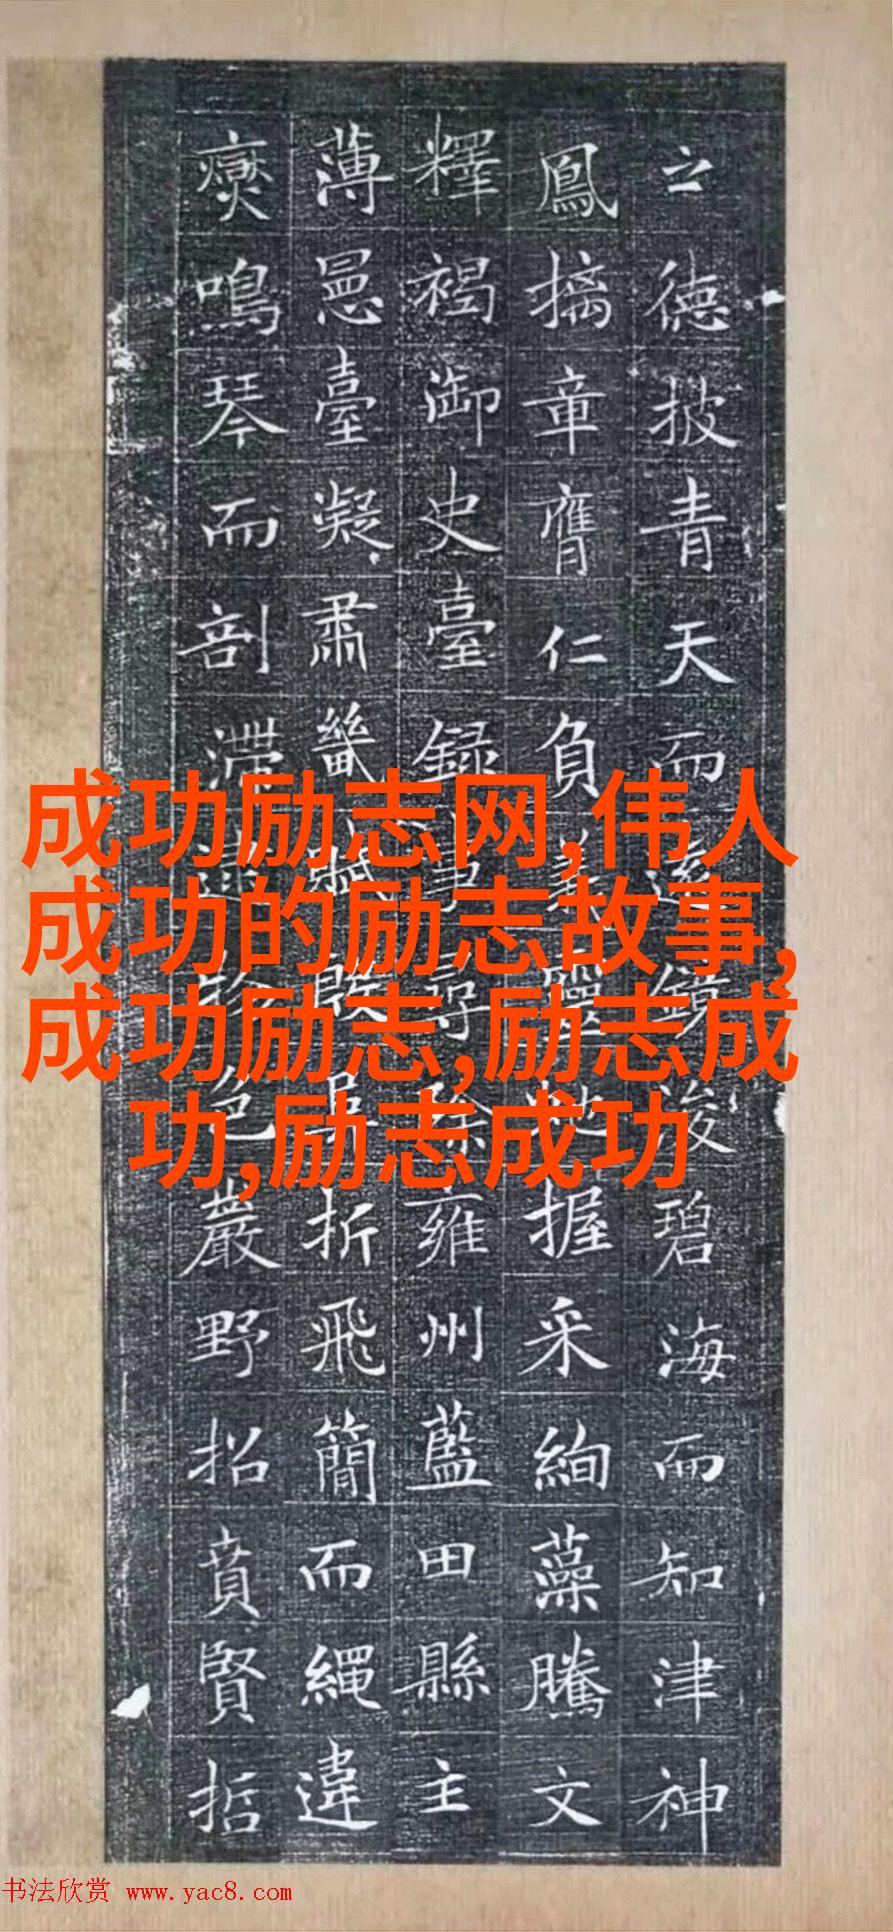 之徳披青天而遠鏡浚碧海而知津神
鳳摛章膺仁負義靈虵握采絢藻騰文
釋褐御史臺録事尋除雍州藍田縣主
薄臺凝肅畿折飛簡而繩違
鳴琴而剖滯嚴野招賁賢哲
成功励志网,伟人
成功的励志故事,
成功励志,励志成
功,励志成功
书法欣赏 www.yac8.com